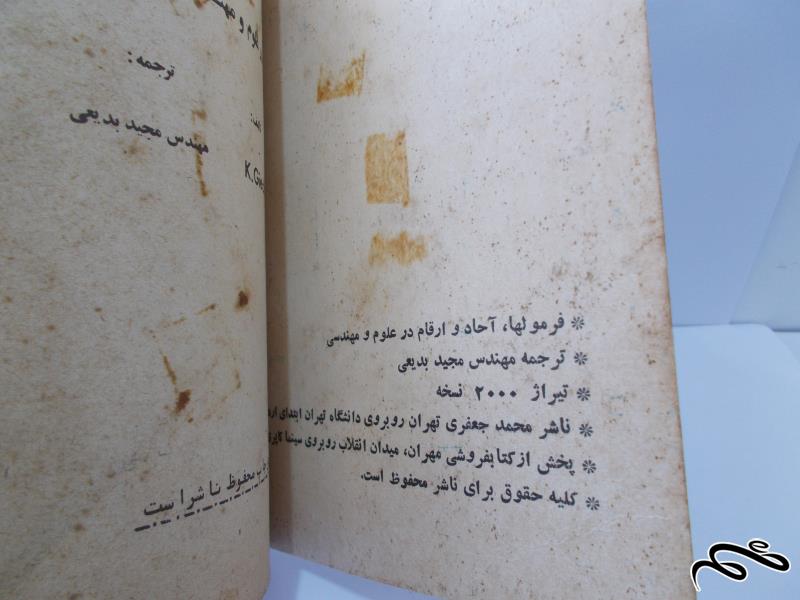 علوم و
ترجمه:
مهندس مجید بدیعی
محفوظ ناشر است
❊ فرمولها، آحاد و ارقام در علوم و مهندسی
❊ ترجمه مهندس مجید بدیعی
❊ تیراژ ۲۰۰۰ نسخه
❊ ناشر محمد جعفری تهران روبروی دانشگاه تهران ابتدای
❊ پخش از کتابفروشی مهران، میدان انقلاب روبروی سینما
❊ کلیه حقوق برای ناشر محفوظ است.